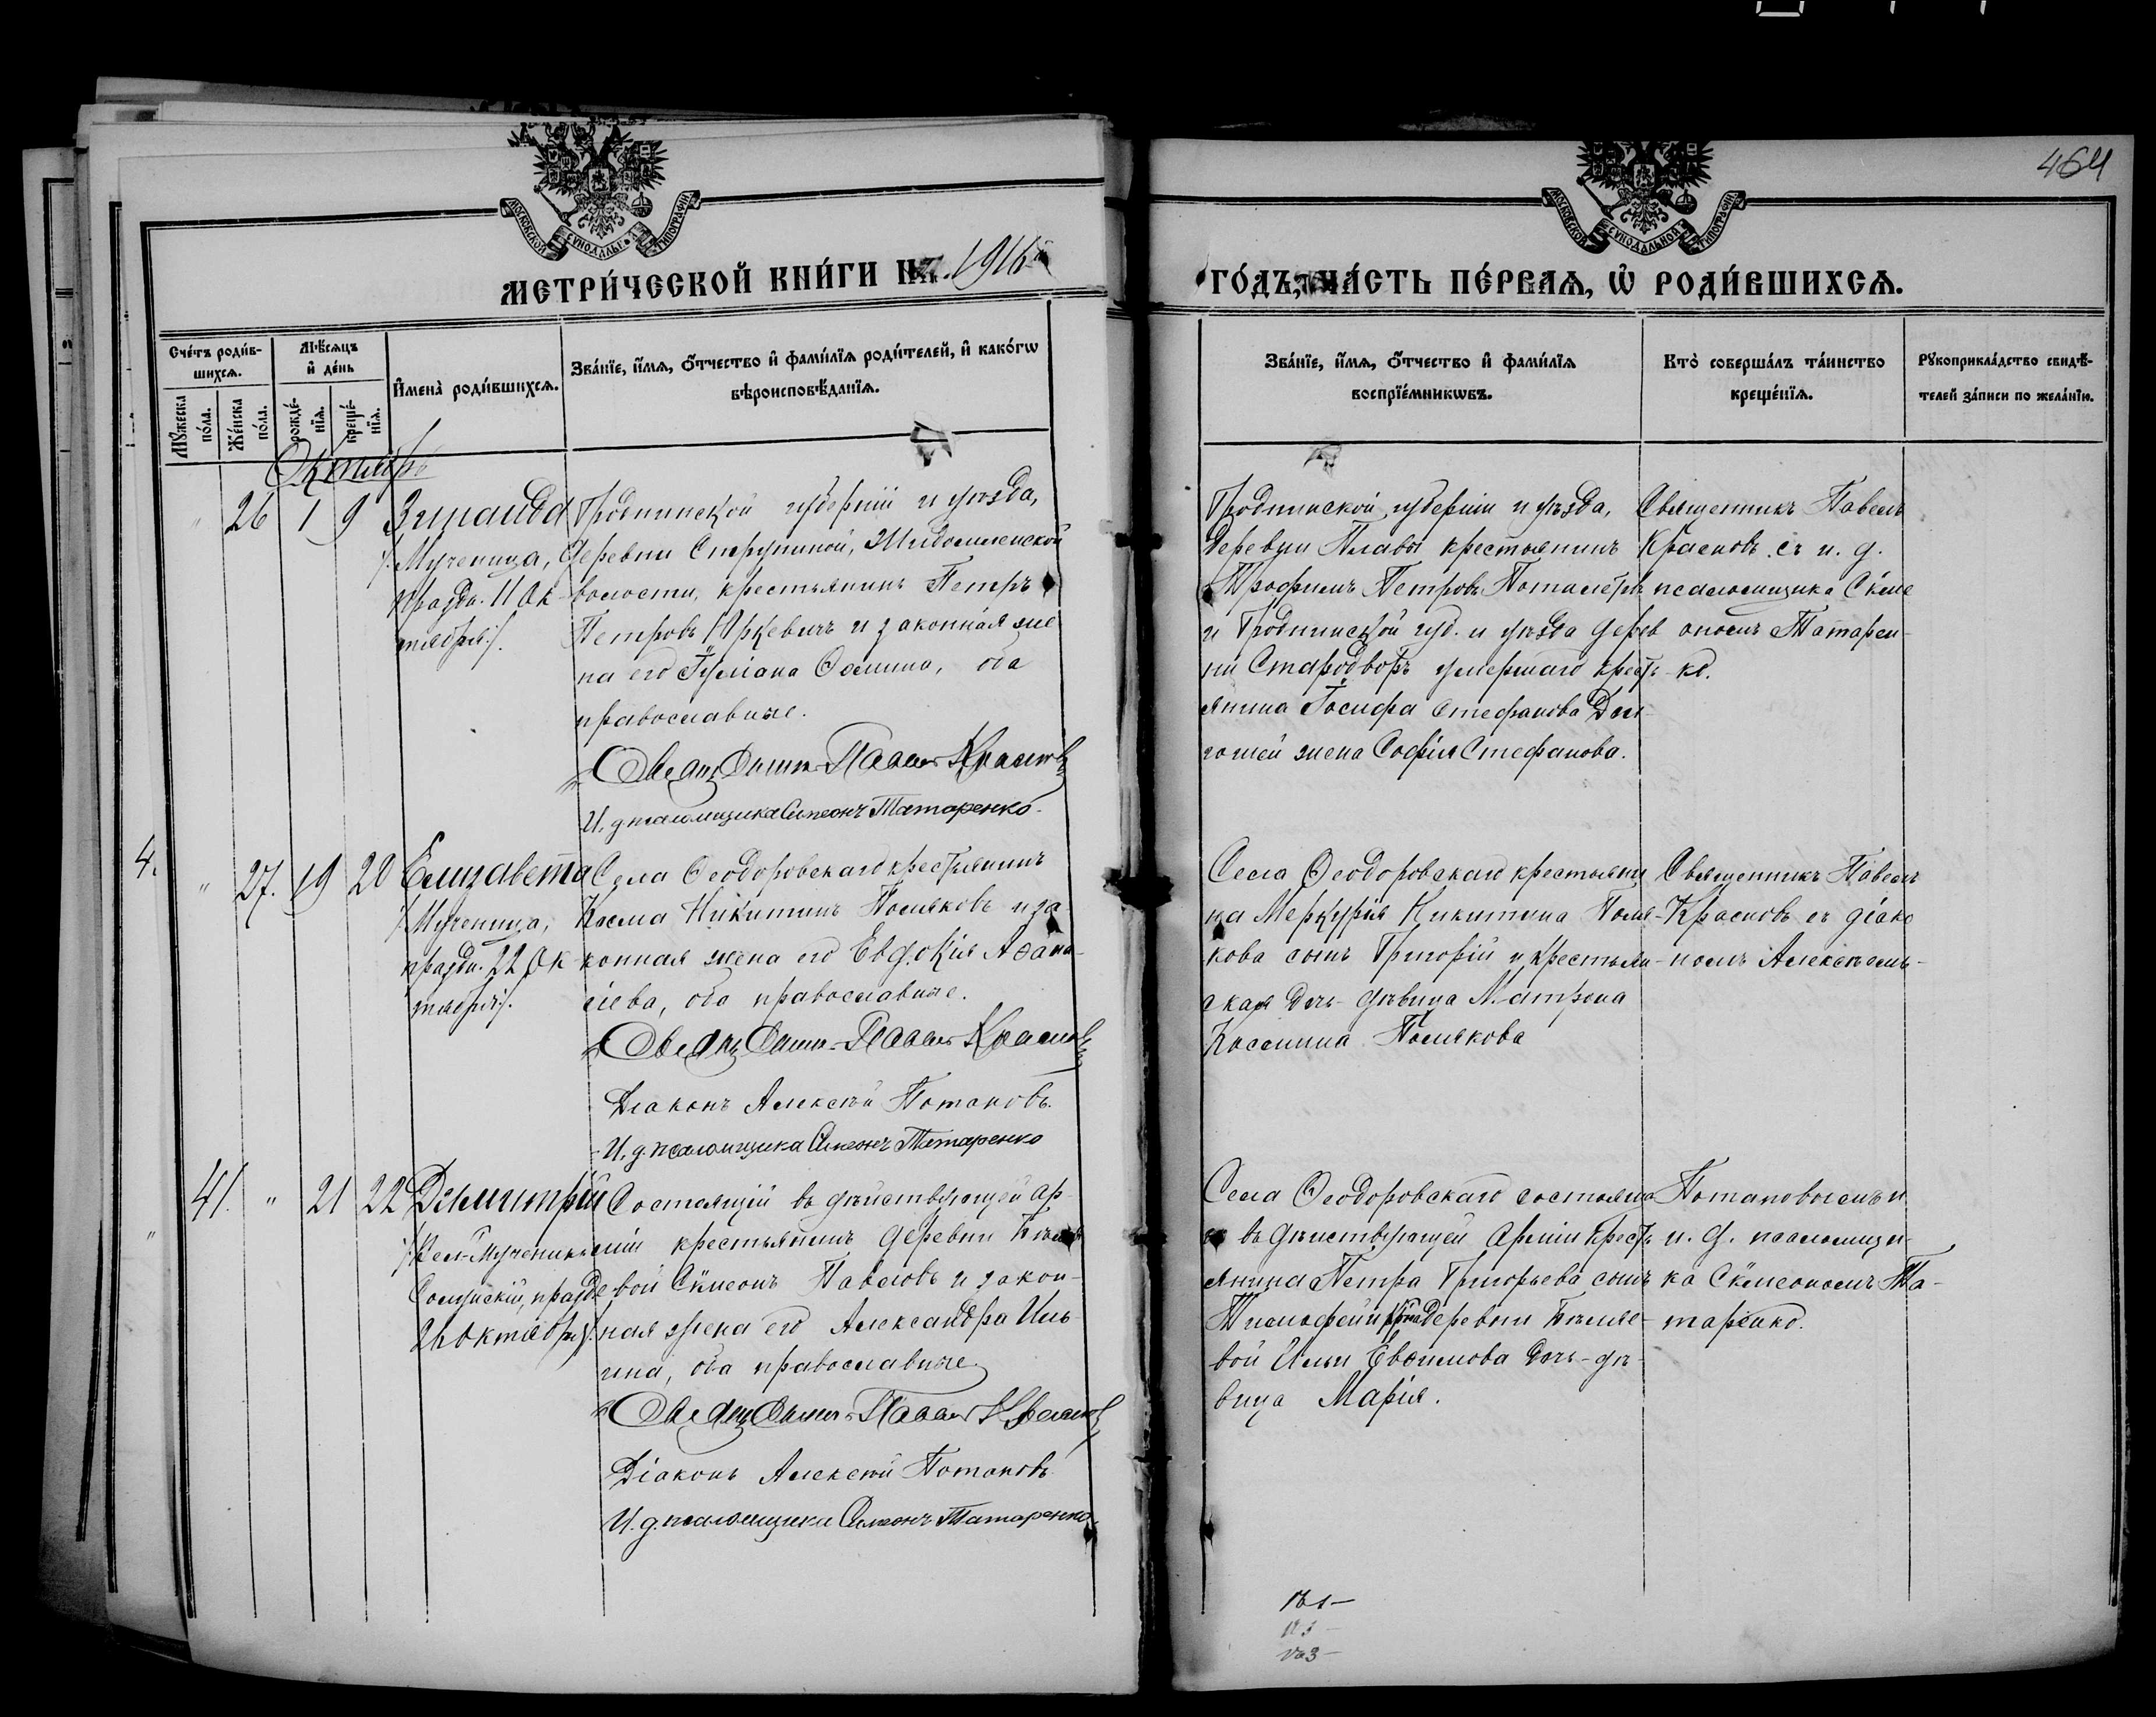 464
МОСКОВСКОЙ СѴНОДАЛЬНОЙ ТИПОГРАФІИ
МОСКОВСКОЙ СѴНОДАЛЬНОЙ ТИПОГРАФІИ
МЕТРИ́ЧЕСКОЙ КНИ́ГИ НА 1916й
ГО́ДЪ, ЧА́СТЬ ПЕ́РВАЯ, Ѡ҆ РОДИ́ВШИХСЯ.
Сче́тъ роди́в-
шихся.
Мѣ́сяцъ
и҆ де́нь
Му́жеска
по́ла.
Же́нска
по́ла.
рожде́-
нїя.
креще́-
нїя.
И҆мена̀ роди́вшихся.
Зва́нїе, и҆́мя, ѻ҆́тчество и҆ фами́лїя роди́телей, и҆ како́гѡ
вѣроисповѣ́данїя.
Зва́нїе, и҆́мя, ѻ҆́тчество и҆ фами́лїя
воспрїе́мникѡвъ.
Кто̀ соверша́лъ та́инство
креще́нїя.
Рꙋкоприкла́дство свидѣ́-
телей за́писи по жела́нїю.
Октябрь
" 26 1 9
Зинаида
/:Мученица,
празд. 11 Ок-
тября:/.
Гродненской губерніи и уѣзда,
деревни Струпиной,
волости, крестьянинъ Петръ
Петровъ Юркевичъ и законная же
на его Іуліана Ѳомина, оба
православные.
Священникъ Павелъ Красновъ
И. д. псаломщика Симеонъ Татаренко
Гродненской губерніи и уѣзда,
деревни Плавы крестьянинъ
Трофимъ Петровъ
и Гродненской губ. и уѣзда дерев
ни Стародворъ умершаго крест-
янина Іосифа Стефанова
жена Софія Стефанова.
Священникъ Павелъ
Красновъ съ и. д.
псаломщика Сѵме
ономъ Татарен-
ко.
4.
" 27. 19 20
Елизавета
/:Мученица,
празд. 22 Ок-
тября:/.
Села Ѳеодоровскаго крестьянинъ
Косма Никитинъ Поляковъ и за-
конная жена его Евдокія Аѳана-
сіева, оба православные.
Священникъ Павелъ Красновъ
Діаконъ Алексѣй Потаповъ.
И. д. псаломщика Симеонъ Татаренко
Села Ѳеодоровскаго крестьяни
на Меркурія Никитина Поля-
кова сынъ Григорій и крестьян-
ская дочь-дѣвица Матрона
Космина Полякова
Священникъ Павелъ
Красновъ съ діако
номъ Алексѣемъ-
41. " 21 22
"
Димитрій
/:Вел-Мученикъ
Солунскій, празд
26 Октября:/.
Состоящій въ дѣйствующей ар-
міи крестьянинъ деревни Бѣляе
вой Сѵмеонъ Павловъ и закон-
ная жена его Александра Иль-
ина, оба православные.
Священникъ Павелъ Красновъ
Діаконъ Алексѣй Потаповъ
И. д. псаломщика Симеонъ Татаренко
Села Ѳеодоровскаго состояща
го въ дѣйствующей арміи крест
янина Петра Григорьева сынъ
Тимофей и деревни Бѣляе-
вой Ильи Евѳимова дочь-дѣ-
вица Марія.
Потаповымъ и
и. д. псаломщи-
ка Сѵмеономъ Та-
таренко.